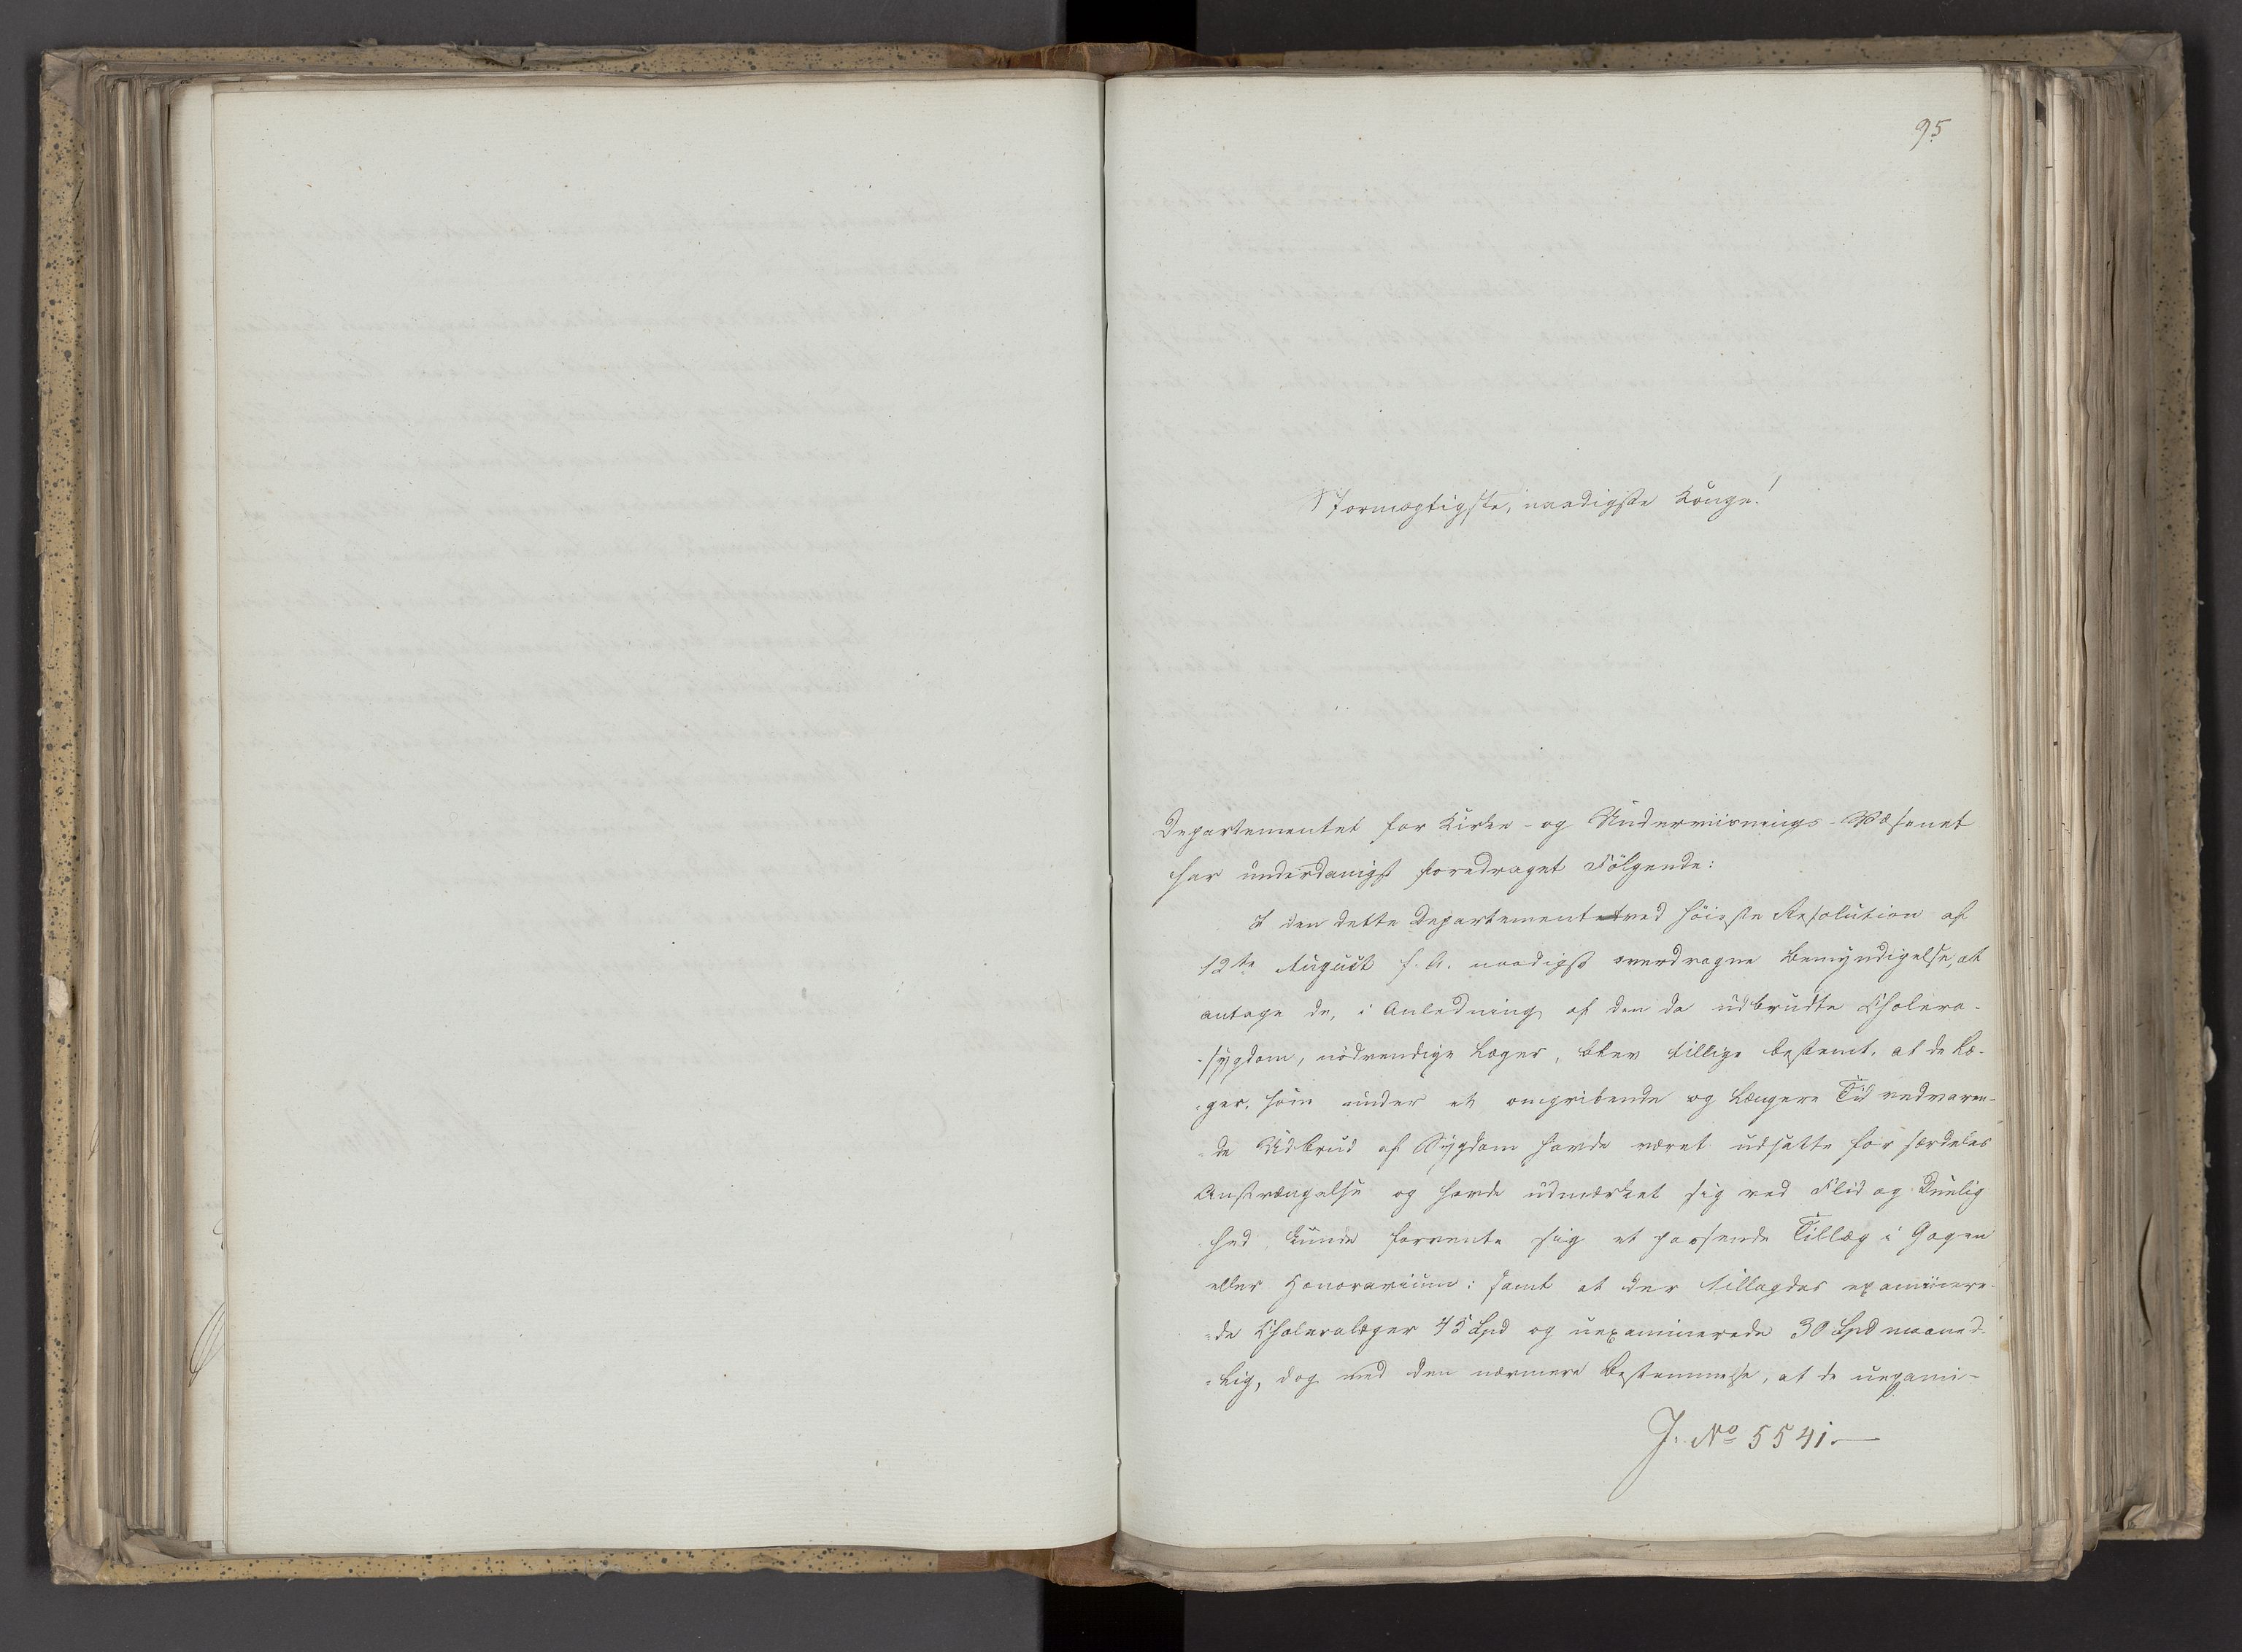 95
Stormægtigste, naadigste Konge!
Departementet for Kirke- og Underviisnings-Væsenet
har underdanigst foredraget Følgende:
I den dette Departement ved høieste Resolution af
12te August f. A. naadigst overdragne Bemyndigelse, at
antage de, i Anledning af den da udbrudte Cholera-
-sygdom, nødvendige Læger, blev tillige bestemt, at de Læ-
-ger, som under et omgribende og længere Tid vedvaren-
-de Udbrud af Sygdom havde været udsatte for særdeles
Anstrængelse og havde udmærket sig ved Flid og Duelig
hed kunde forvente sig et passende Tillæg i Gagen
eller Honorarium: samt at der tillagdes examinere-
-de Choleralæger 45 Spd og uexaminerede 30 Spd maaned-
-lig, dog med den nærmere Bestemmelse, at de uexami-
J. No 5541.—